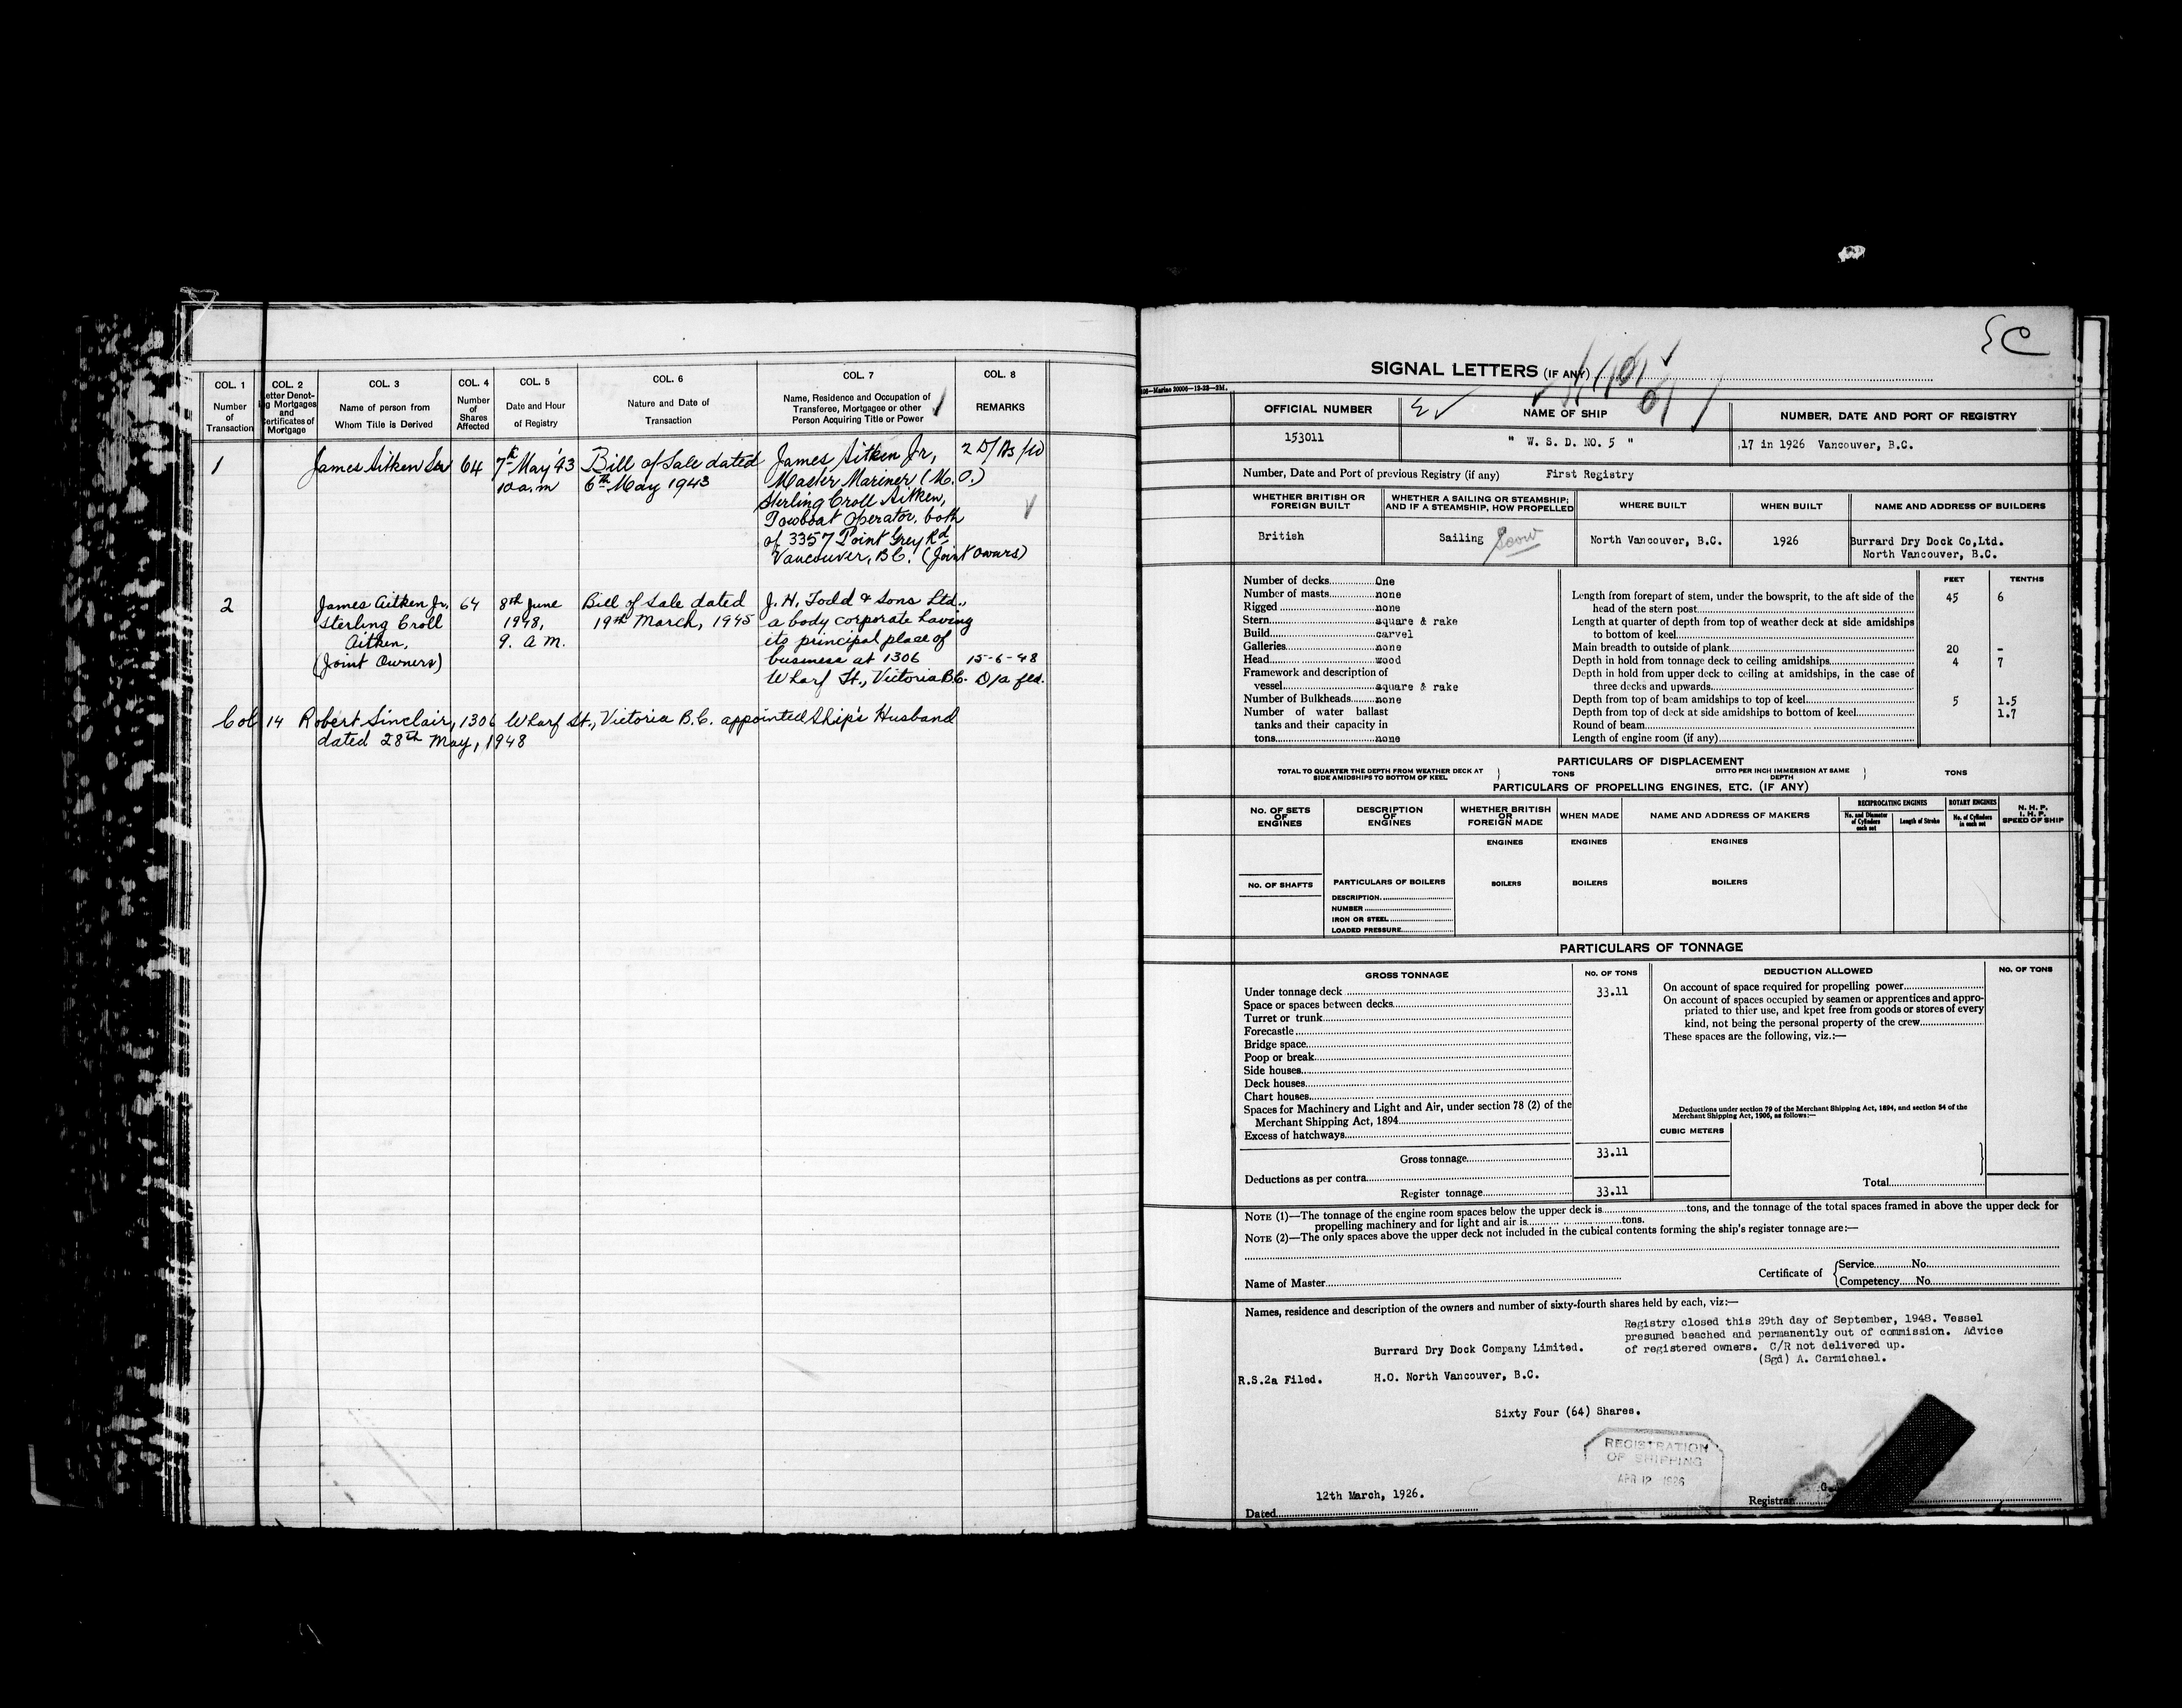 COL. 1
Number
of
Transaction
COL. 2
Letter Denot-
ing Mortgages
and
Certificates of
Mortgage
COL. 3
Name of person from
Whom Title is Derived
COL. 4
Number
of
Shares
Affected
COL. 5
Date and Hour
of Registry
COL. 6
Nature and Date of
Transaction
COL. 7
Name, Residence and Occupation of
Transferee, Mortgagee or other
Person Acquiring Title or Power
COL. 8
REMARKS
1
James Aitken Sr
64
7th May '43
10 a.m
Bill of Sale dated
6th May 1943
James Aitken Jr,
Master Mariner (M.O.)
Sterling Croll Aitken,
Towboat Operator, both
of 3357 Point Grey Rd
Vancouver, B.C. (Joint Owners)
2
James Aitken Jr,
Sterling Croll
Aitken,
(Joint Owners)
64
8th June
1948,
9. A M.
Bill of Sale dated
19th March, 1945
J. H. Todd & Sons Ltd.,
a body corporate having
its principal place of
business at 1306
Wharf St., Victoria B.C.
15-6-48
D/a fld.
Col 14 Robert Sinclair, 1306 Wharf St., Victoria B.C. appointed Ship's Husband
dated 28th May, 1948
SIGNAL LETTERS (IF ANY)
OFFICIAL NUMBER
153011
NAME OF SHIP
" W. S. D. NO. 5 "
NUMBER, DATE AND PORT OF REGISTRY
17 in 1926 Vancouver, B.C.
Number, Date and Port of previous Registry (if any) First Registry
WHETHER BRITISH OR
FOREIGN BUILT
WHETHER A SAILING OR STEAMSHIP;
AND IF A STEAMSHIP, HOW PROPELLED
WHERE BUILT
WHEN BUILT
NAME AND ADDRESS OF BUILDERS
British
Sailing Scow
North Vancouver, B.C.
1926
Burrard Dry Dock Co,Ltd.
North Vancouver, B.C.
Number of decks One
Number of masts none
Rigged none
Stern square & rake
Build carvel
Galleries none
Head wood
Framework and description of
vessel square & rake
Number of Bulkheads none
Number of water ballast
tanks and their capacity in
tons none
FEET TENTHS
Length from forepart of stem, under the bowsprit, to the aft side of the
head of the stern post 45 6
Length at quarter of depth from top of weather deck at side amidships
to bottom of keel
Main breadth to outside of plank 20 -
Depth in hold from tonnage deck to ceiling amidships 4 7
Depth in hold from upper deck to ceiling at amidships, in the case of
three decks and upwards
Depth from top of beam amidships to top of keel 5 1.5
Depth from top of deck at side amidships to bottom of keel 1.7
Round of beam
Length of engine room (if any)
PARTICULARS OF DISPLACEMENT
TOTAL TO QUARTER THE DEPTH FROM WEATHER DECK AT
SIDE AMIDSHIPS TO BOTTOM OF KEEL
TONS
DITTO PER INCH IMMERSION AT SAME
DEPTH
TONS
PARTICULARS OF PROPELLING ENGINES, ETC. (IF ANY)
No. OF SETS
OF
ENGINES
DESCRIPTION
OF
ENGINES
WHETHER BRITISH
OR
FOREIGN MADE
WHEN MADE
NAME AND ADDRESS OF MAKERS
RECIPROCATING ENGINES
No. and Diameter
of Cylinders
each set
Length of Stroke
ROTARY ENGINES
No. of Cylinders
in each set
N. H. P.
I. H. P.
SPEED OF SHIP
ENGINES
ENGINES
ENGINES
No. OF SHAFTS
PARTICULARS OF BOILERS
BOILERS
BOILERS
BOILERS
DESCRIPTION
NUMBER
IRON OR STEEL
LOADED PRESSURE
PARTICULARS OF TONNAGE
GROSS TONNAGE
No. OF TONS
DEDUCTION ALLOWED
No. OF TONS
Under tonnage deck 33.11
Space or spaces between decks
Turret or trunk
Forecastle
Bridge space
Poop or break
Side houses
Deck houses
Chart houses
Spaces for Machinery and Light and Air, under section 78 (2) of the
Merchant Shipping Act, 1894
Excess of hatchways
Gross tonnage 33.11
Deductions as per contra
Register tonnage 33.11
On account of space required for propelling power
On account of spaces occupied by seamen or apprentices and appro-
priated to thier use, and kpet free from goods or stores of every
kind, not being the personal property of the crew
These spaces are the following, viz.:—
Deductions under section 79 of the Merchant Shipping Act, 1894, and section 54 of the
Merchant Shipping Act, 1906, as follows:—
CUBIC METERS
Total
NOTE (1)—The tonnage of the engine room spaces below the upper deck is tons, and the tonnage of the total spaces framed in above the upper deck for
propelling machinery and for light and air is tons.
NOTE (2)—The only spaces above the upper deck not included in the cubical contents forming the ship's register tonnage are:—
Name of Master
Certificate of
Service No.
Competency No.
Names, residence and description of the owners and number of sixty-fourth shares held by each, viz:—
Registry closed this 29th day of September, 1948. Vessel
presumed beached and permanently out of commission. Advice
of registered owners. C/R not delivered up.
(Sgd) A. Carmichael.
Burrard Dry Dock Company Limited.
R.S.2a Filed. H.O. North Vancouver, B.C.
Sixty Four (64) Shares.
REGISTRATION
OF SHIPPING
APR 12 1926
12th March, 1926.
Dated
Registrar